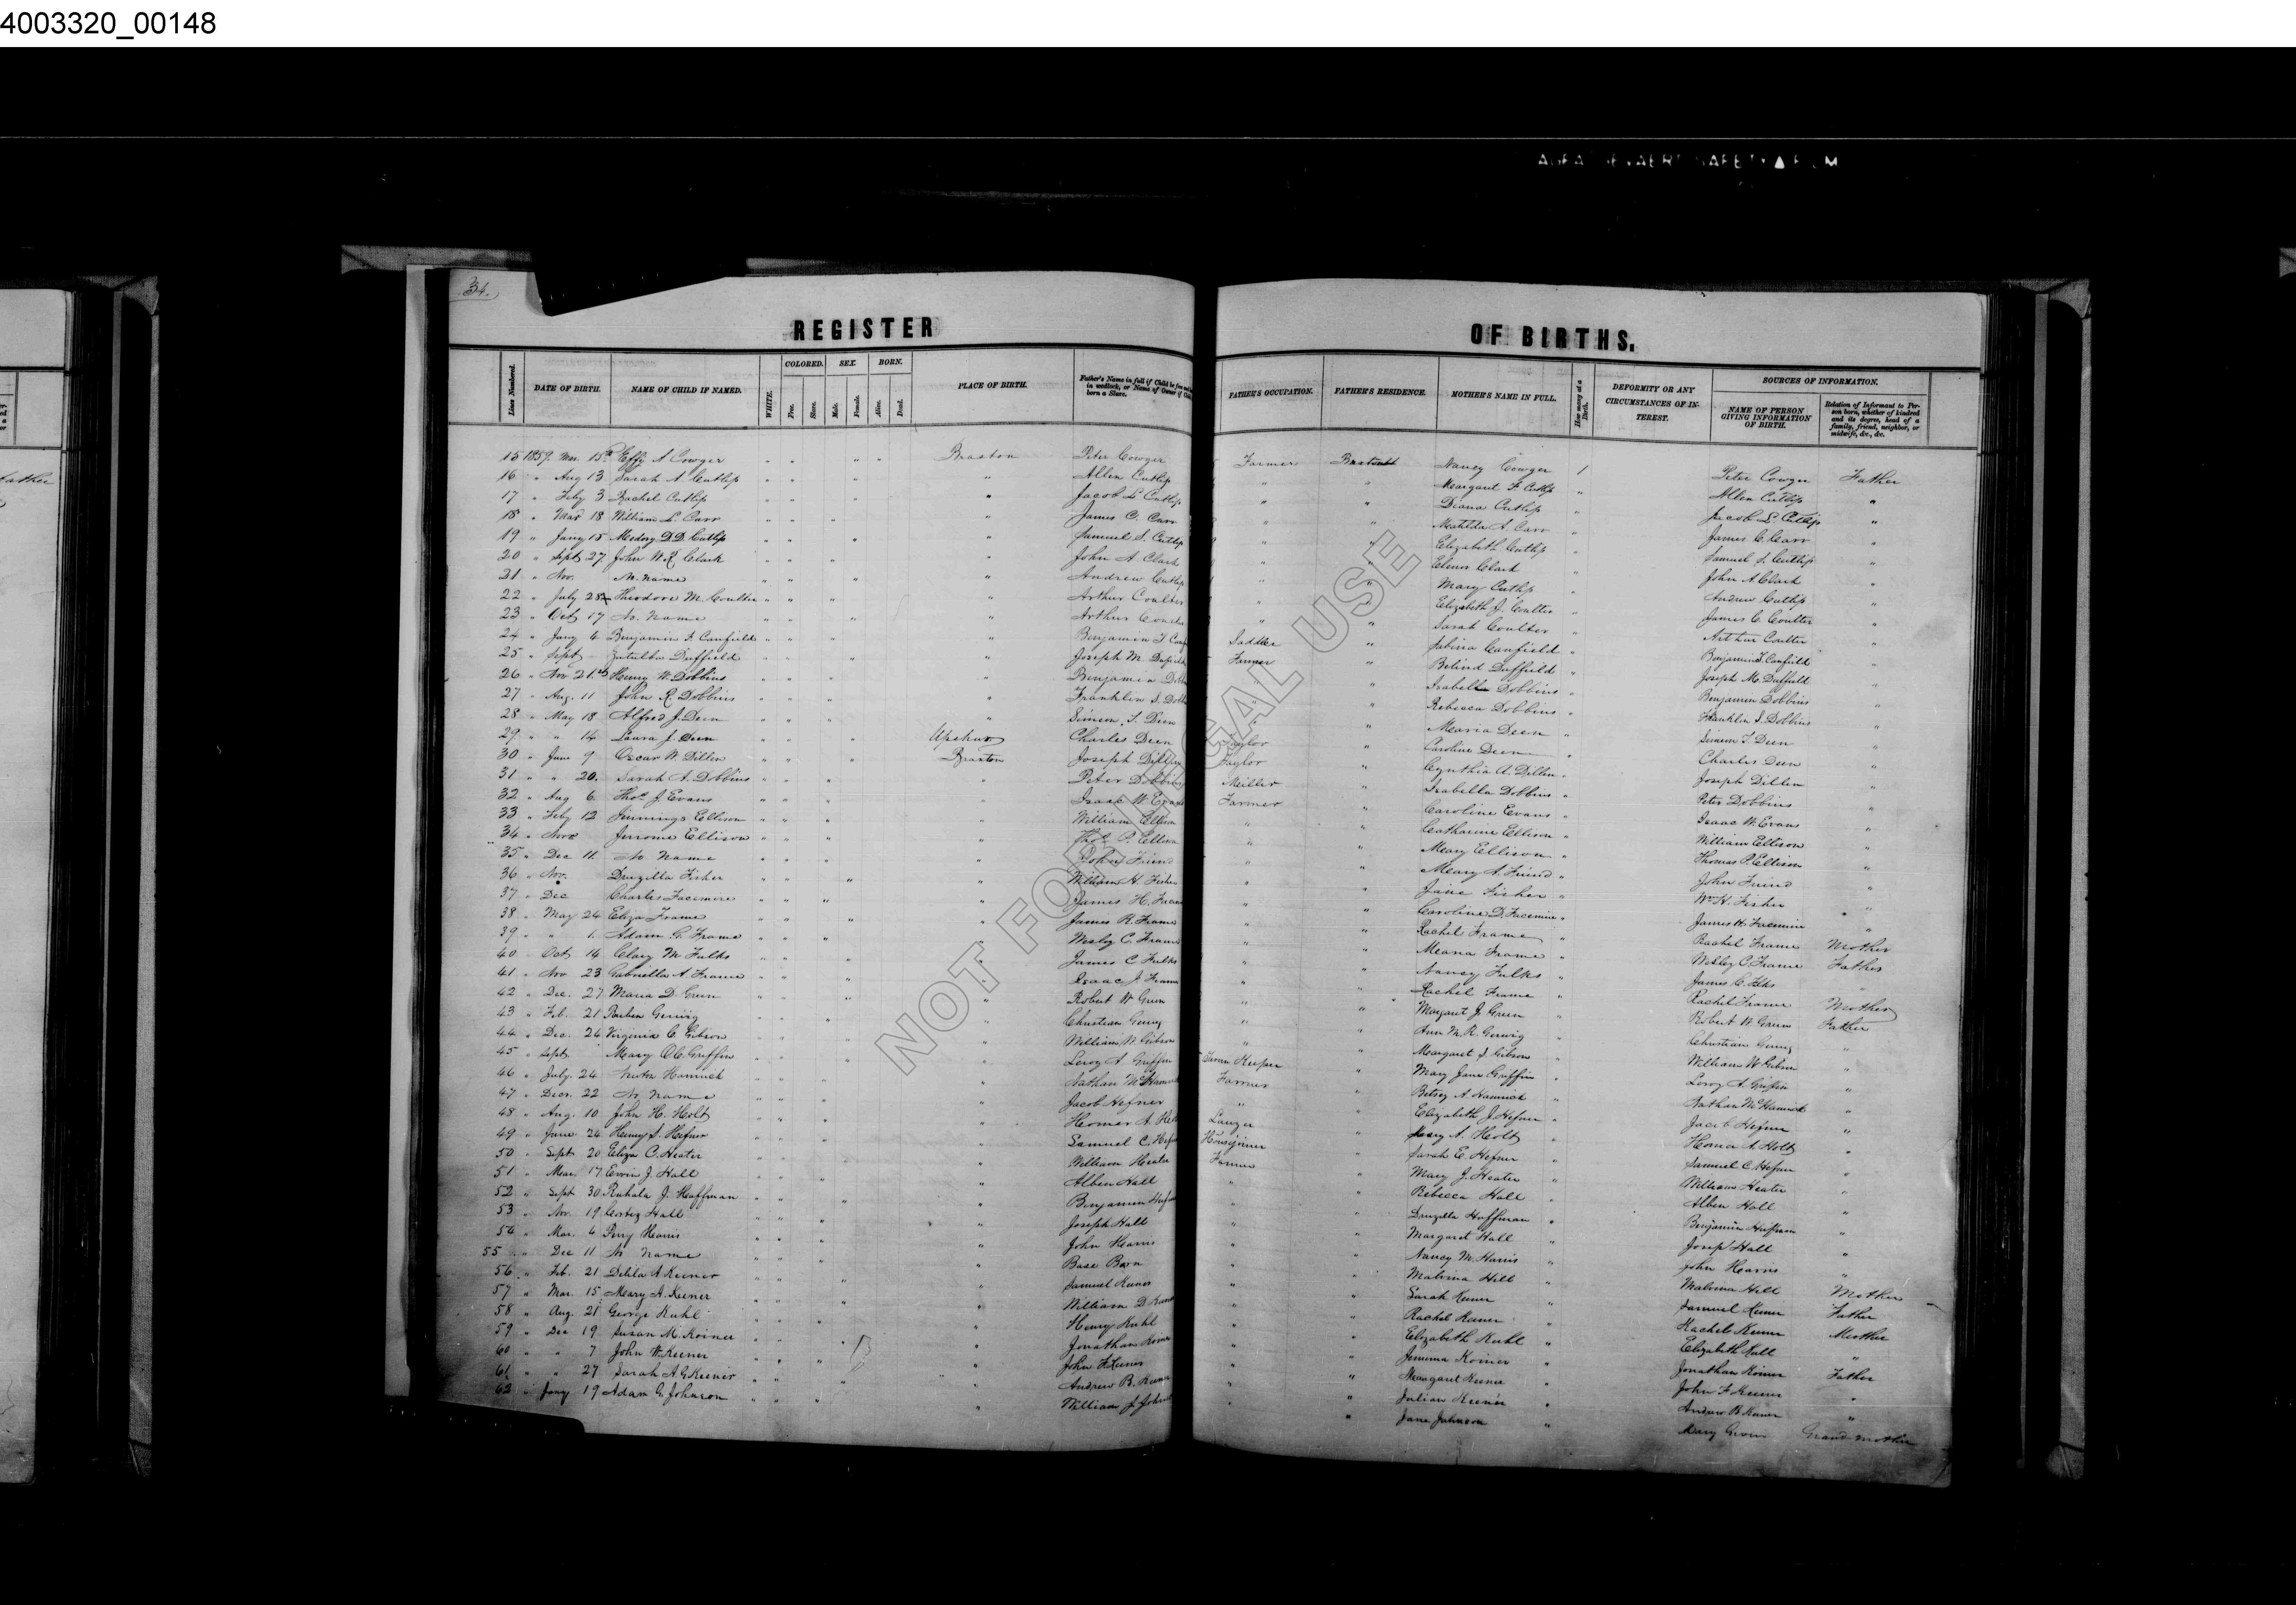 4003320_00148
34.
REGISTER OF BIRTHS.
Lines Numbered. DATE OF BIRTH. NAME OF CHILD IF NAMED. WHITE. COLORED. Free. Slave. SEX. Male. Female. BORN. Alive. Dead. PLACE OF BIRTH. Father's Name in full if Child be free and in wedlock, or Name of Owner if born a Slave. FATHER'S OCCUPATION. FATHER'S RESIDENCE. MOTHER'S NAME IN FULL. How many at a Birth. DEFORMITY OR ANY CIRCUMSTANCES OF INTEREST. SOURCES OF INFORMATION. NAME OF PERSON GIVING INFORMATION OF BIRTH. Relation of Informant to Person born, whether of kindred and its degree, head of a family, friend, neighbor, or midwife, &c., &c.
15 1859. Mar. 15 Effy A Cowger Braxton Peter Cowger Farmer Nancy Cowger 1 Peter Cowger Father
16 " Aug 13 Sarah A Cutlip " Allen Cutlip " " Margaret F Cutlip " Allen Cutlip "
17 " Feby 3 Rachel Cutlip " Jacob L Cutlip " " Diana Cutlip " Jacob L. Cutlip "
18 " Mar 18 William L. Carr " James C. Carr " " Matilda A. Carr " James C Carr "
19 " Jany 15 D. D. Cutlip " Samuel S. Cutlip " " Elizabeth Cutlip " Samuel S. Cutlip "
20 " Sept 27 John W. R Clark " John A Clark " " Elenor Clark " John A. Clark "
21 " Nov. No. name " Andrew Cutlip " " Mary Cutlip " Andrew Cutlip "
22 " July 28 Theodore M. Coulter " Arthur Coulter " " Elizabeth J. Coulter " James C Coulter "
23 " Oct 17 No. Name " Arthur " " Sarah Coulter " Arthur Coulter "
24 " Jany 4 Benjamin F. Canfield " Benjamin F Saddler " Sabina Canfield " Benjamin F. Canfield "
25 " Sept Duffield " Joseph M. Farmer " Belind Duffield " Joseph M. Duffield "
26 " Nov 21 Henry W. Dobbins " Benjamin " Isabella Dobbins " Benjamin Dobbins "
27 " Aug. 11 John R. Dobbins " Franklin S. " Rebecca Dobbins " Franklin S. Dobbins "
28 " May 18 Alfred J. Deen " Simeon S. Deen " Maria Deen " Simeon S. Deen "
29 " " 14 Laura J. Deen Upshur Charles Deen Taylor " Caroline Deen " Charles Deen "
30 " June 9 Oscar W. Dillen Braxton Joseph Dillen Taylor " Cynthia A. Dillen " Joseph Dillen "
31 " " 20. Sarah A. Dobbins " Peter Dobbins Miller " Isabella Dobbins " Peter Dobbins "
32 " Aug 6 Thos. J. Evans " Isaac W. Evans Farmer " Caroline Evans " Isaac W. Evans "
33 " Feby 12 Jennings Ellison " William Ellison " " Catharine Ellison " William Ellison "
34 " Nov Jerrome Ellison " Thos. P. Ellison " " Mary Ellison " Thomas P. Ellison "
35 " Dec 11. No Name " John Friend " " Mary A. Friend " John Friend "
36 " Nov. Druzilla Fisher " William H. Fisher " " Jane Fisher " Wm H. Fisher "
37 " Dec Charles Facemire " James H. " " Caroline D. Facemire " James H. Facemire "
38 " May 24 Eliza Frame " James R. Frame " " Rachel Frame " Rachel Frame Mother
39 " " 1. Adam G. Frame " Wesley C. Frame " " Frame " Wesley C. Frame Father
40 " Oct 14 Clary M Fulks " James C Fulks " " Nancy Fulks " James C. "
41 " Nov 23 Gabriella A. Frame " Isaac J. Frame " " Rachel Frame " Rachel Frame Mother
42 " Dec. 27 Maria D. Green " Robert W Green " " Margaret J. Green " Robert W. Green Father
43 " Feb. 21 Reuben Gerwig " Christian Gerwig " " Ann M. R. Gerwig " Christian Gerwig "
44 " Dec. 24 Virginia C. Gibson " William W Gibson " " Margaret S Gibson " William W Gibson "
45 " Sept. Mary Griffin " Leroy A Griffin Tavern Keeper " Mary Jane Griffin " Leroy A. Griffin "
46 " July 24 Hamrick " Nathan Farmer " Betsey A Hamrick " Nathan McHamrick "
47 " Decr. 22 No Name " Jacob Hefner " " Elizabeth J. Hefner " Jacob Hefner "
48 " Aug. 10 John H. Holt " Homer A. Holt Lawyer " Mary A. Holt " Homer A. Holt "
49 " June 24 Henry S. Hefner " Samuel C. Housejoiner " Sarah E. Hefner " Samuel C. Hefner "
50 " Sept 20 Eliza C. Heater " William Heater Farmer " Mary J. Heater " William Heater "
51 " Mar 17 Ervin J. Hall " Alben Hall " " Rebecca Hall " Alben Hall "
52 " Sept 30 Ruhala J. Hoffman " Benjamin " " Druzilla Hoffman " Benjamin Hoffman "
53 " Nov. 19 Cortez Hall " Joseph Hall " " Margaret Hall " Joseph Hall "
54 " Mar. 4 Perry Harris " John Harris " " Nancy M. Harris " John Harris "
55 " Dec 11 No Name " Base Born " " Malvina Hill " Malvina Hill Mother
56 " Feb. 21 Delila A Keener " Samuel Keener " " Sarah Keener " Samuel Keener Father
57 " Mar. 15 Mary A. Keener " William D. " " Rachel Keener " Rachel Keener Mother
58 " Aug. 21 George Kuhl " Henry Kuhl " " Elizabeth Kuhl " Elizabeth Kuhl "
59 " Dec 19 Susan M. Koiner " Jonathan " " Jemima Koiner " Jonathan Koiner Father
60 " " 7 John W. Keener " John F. Keener " " Margaret Keener " John F Keener "
61 " " 27 Sarah A. G. Keener " Andrew B. " " Julian Keener " Andrew B Keener "
62 " Jany 19 Adam G. Johnson " William J. " " Jane Johnson " Mary Grand mother
NOT FOR LEGAL USE